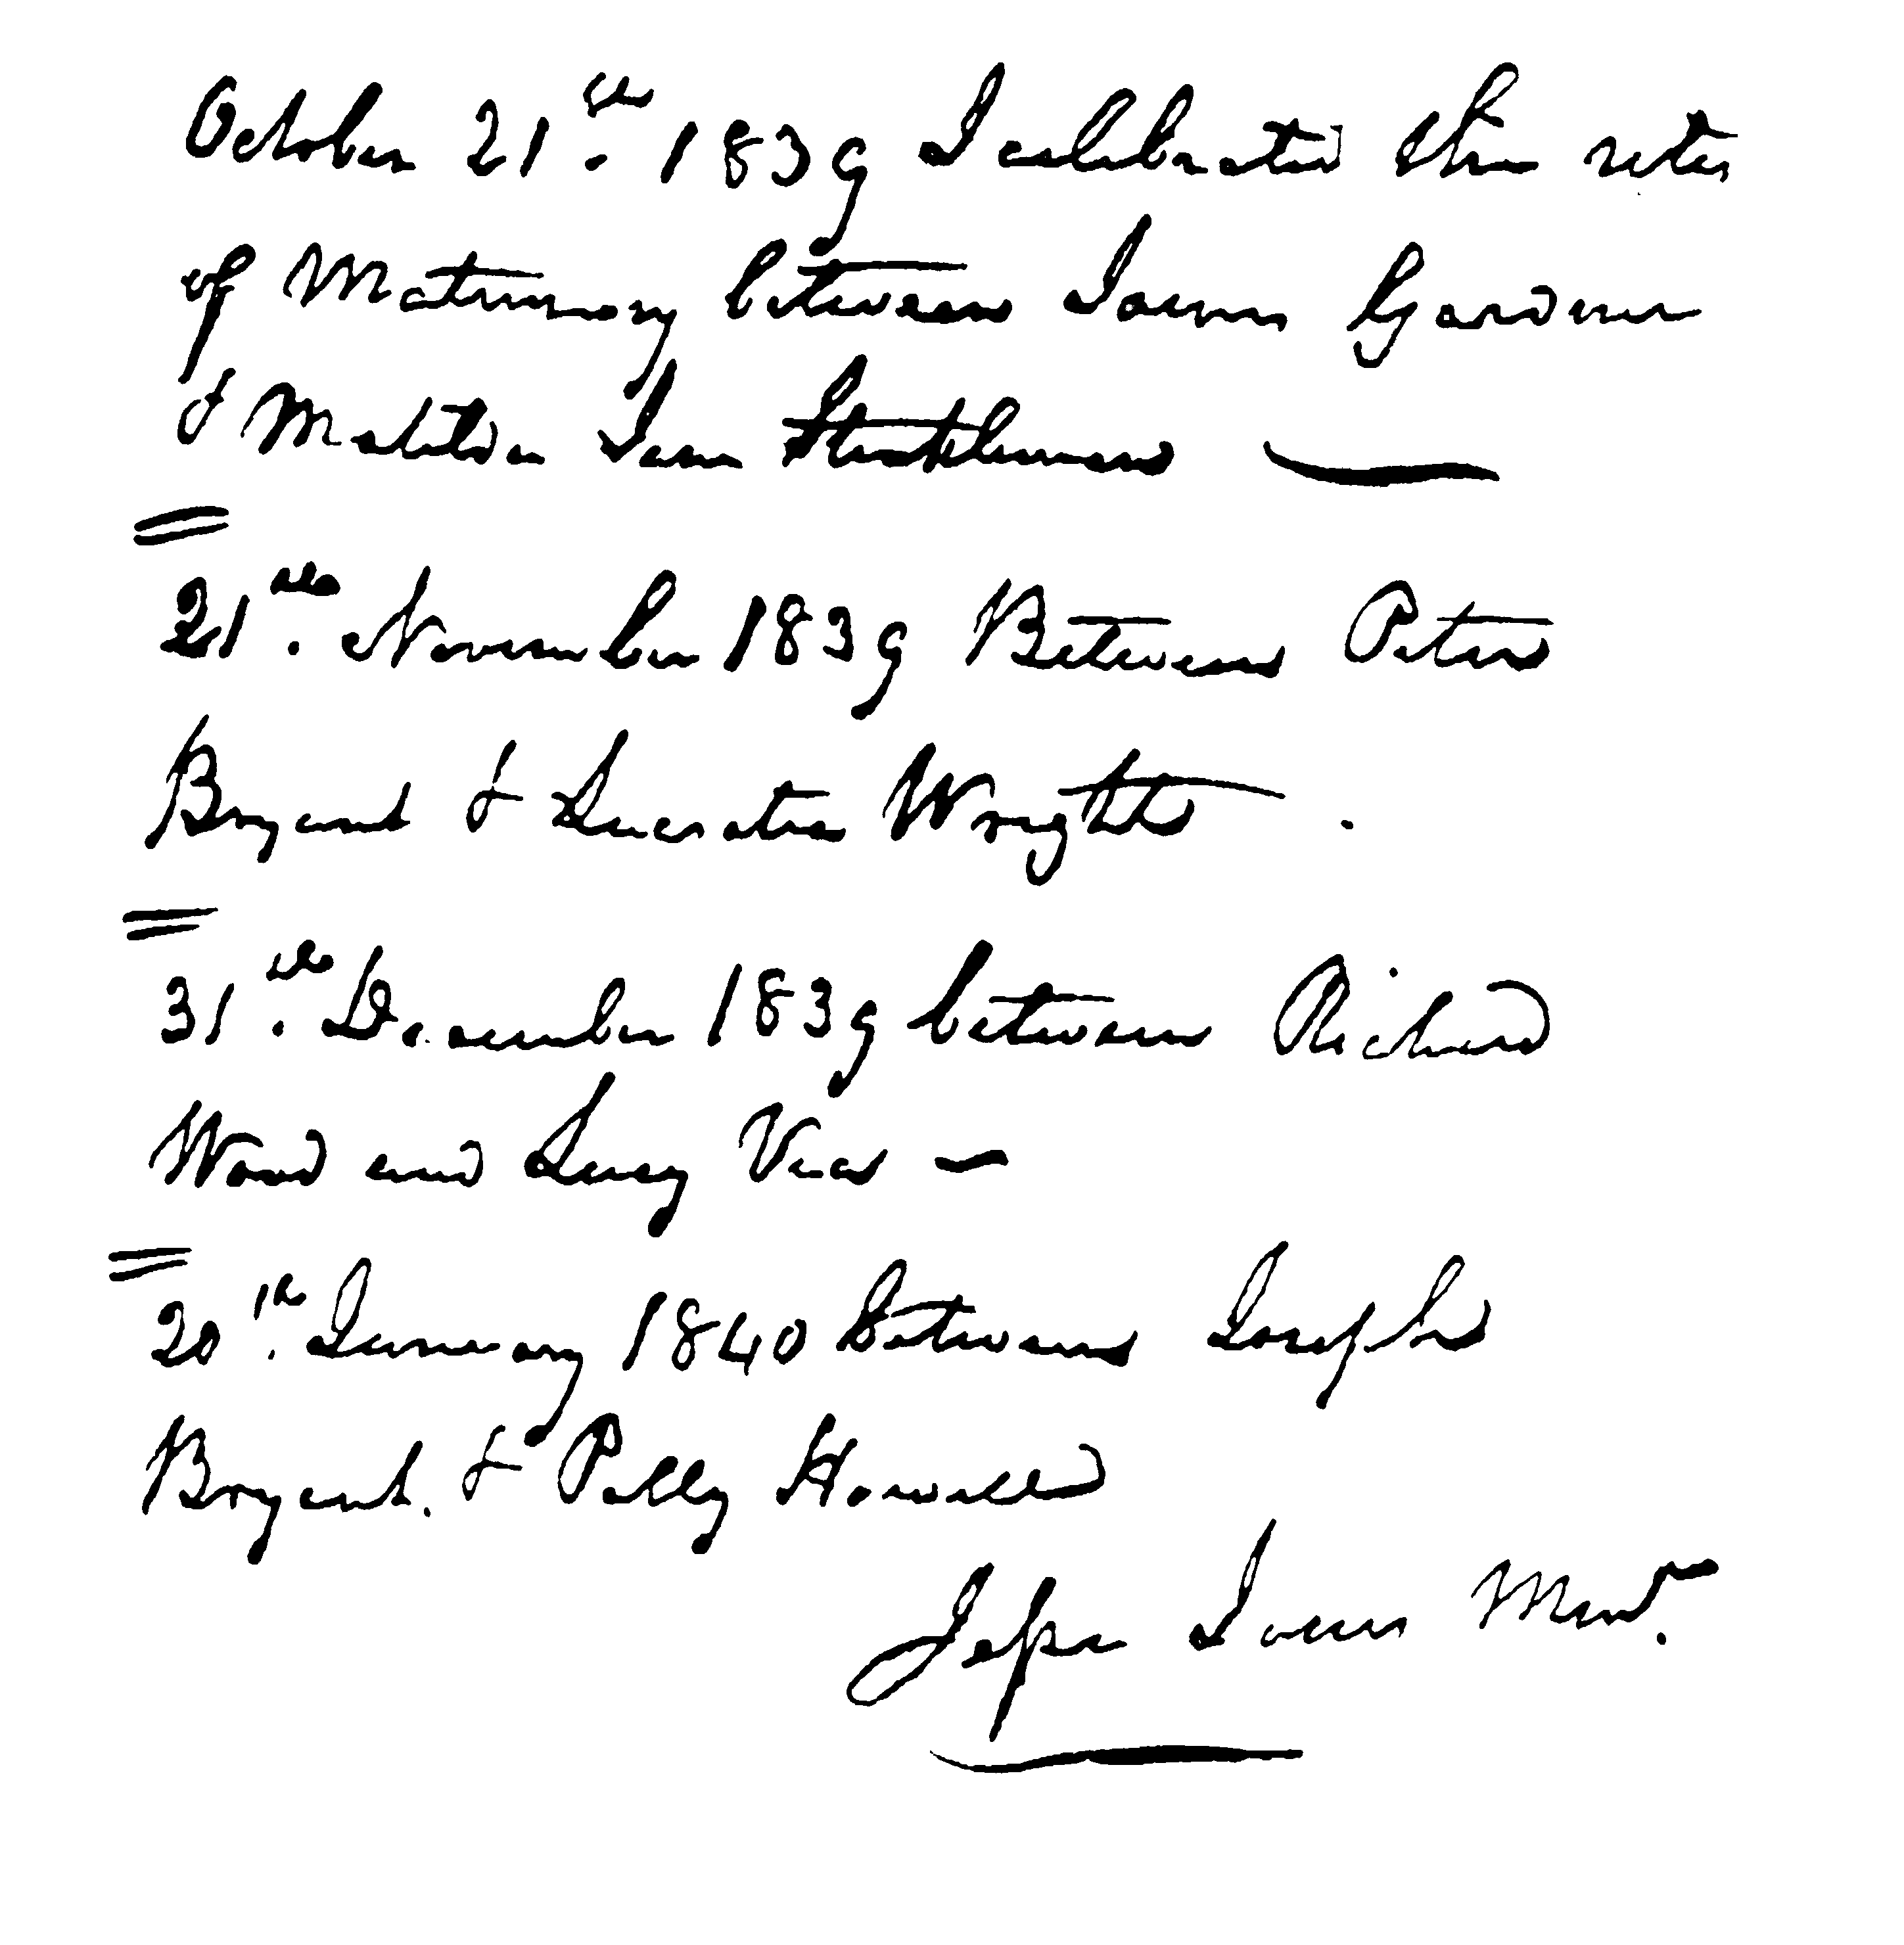 October 21st. 1839 I cellebrated the rites
of Matrimony between James Gardner
& Matilda Ann
21st. November 1839 Between Peter
Bryand & Lucretia Wright.
31st. December 1839 between Richard
Ward and Lucy
20th. January 1840 between Joseph
Bryand. & Polly Kennedy
Jesse Jones Minst.